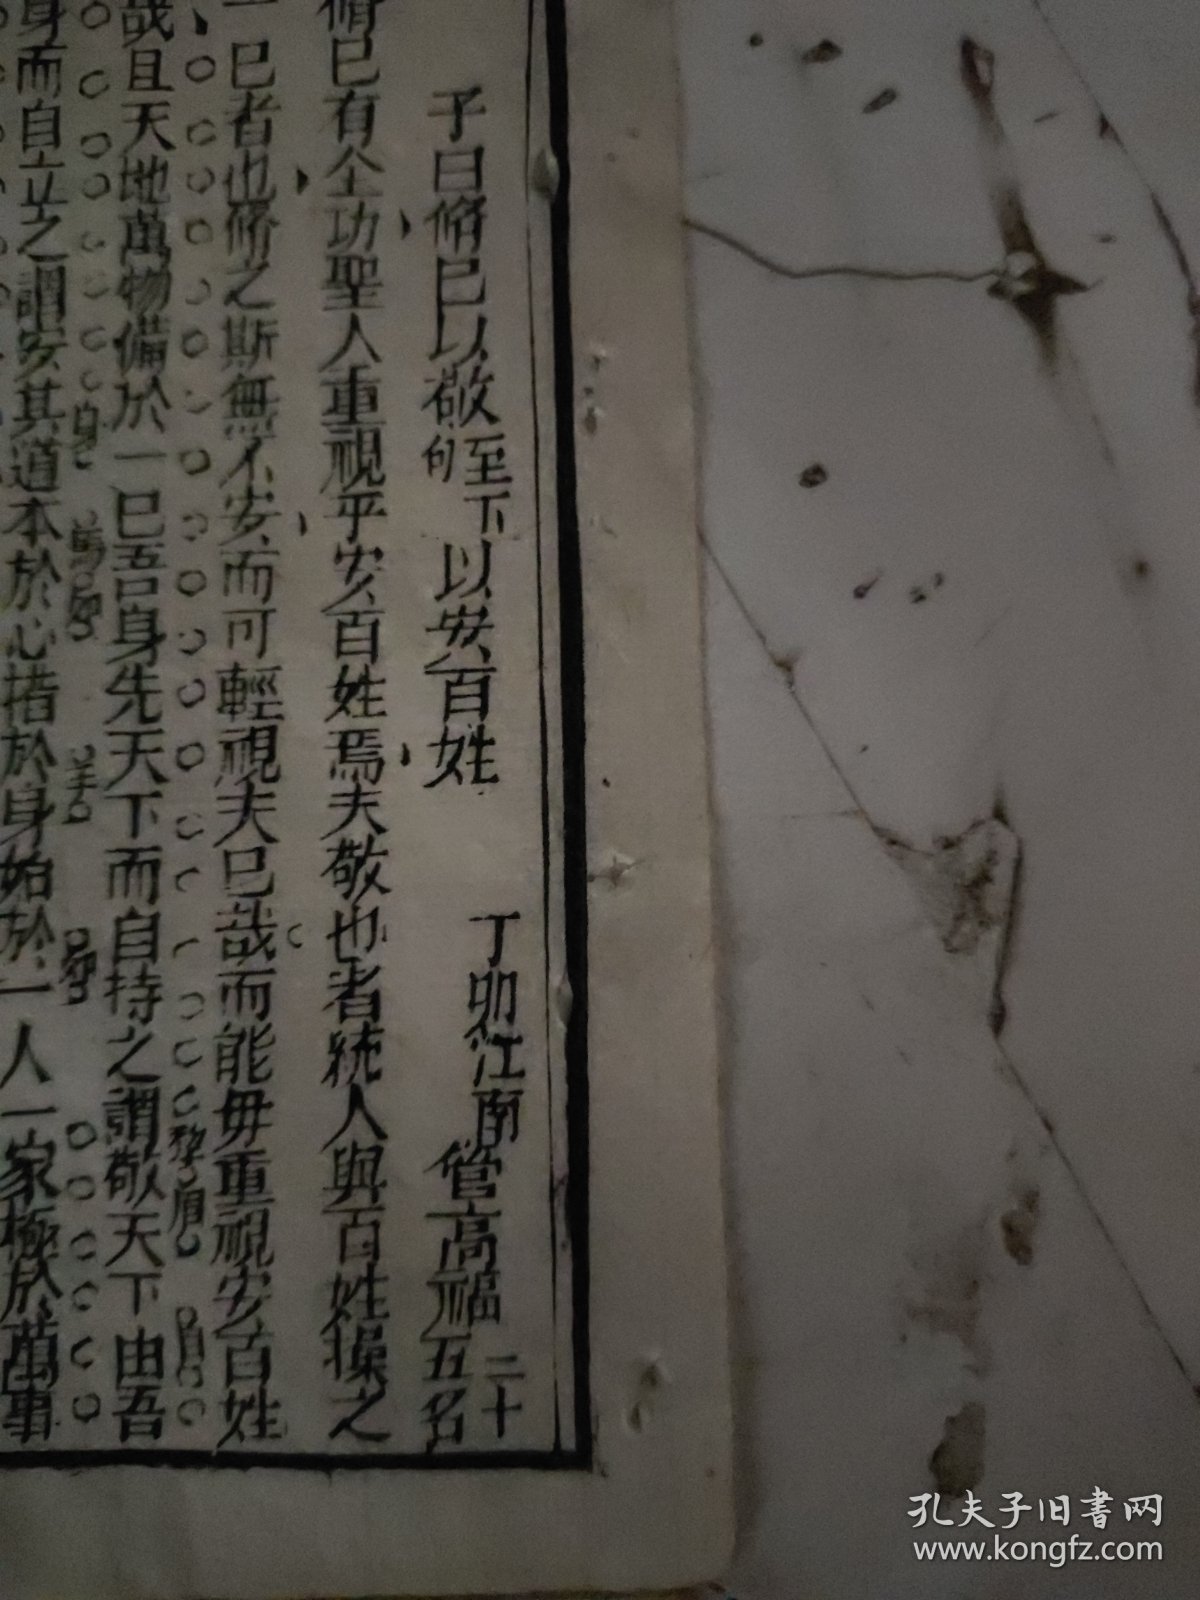 子曰脩已以敬至下句以安百姓 丁卯江南管高福二十五名
脩已有仝功聖人重視乎安百姓焉夫敬也者統人與百姓操之
一已者也脩之斯無不安而可輕視夫已哉而能毋重視安百姓
哉且天地萬物備於一已吾身先天下而自持之謂敬天下由吾
身而自立之謂安其道本於心措於身始於一人一家極於萬事
孔夫子旧书网
www.kongfz.com